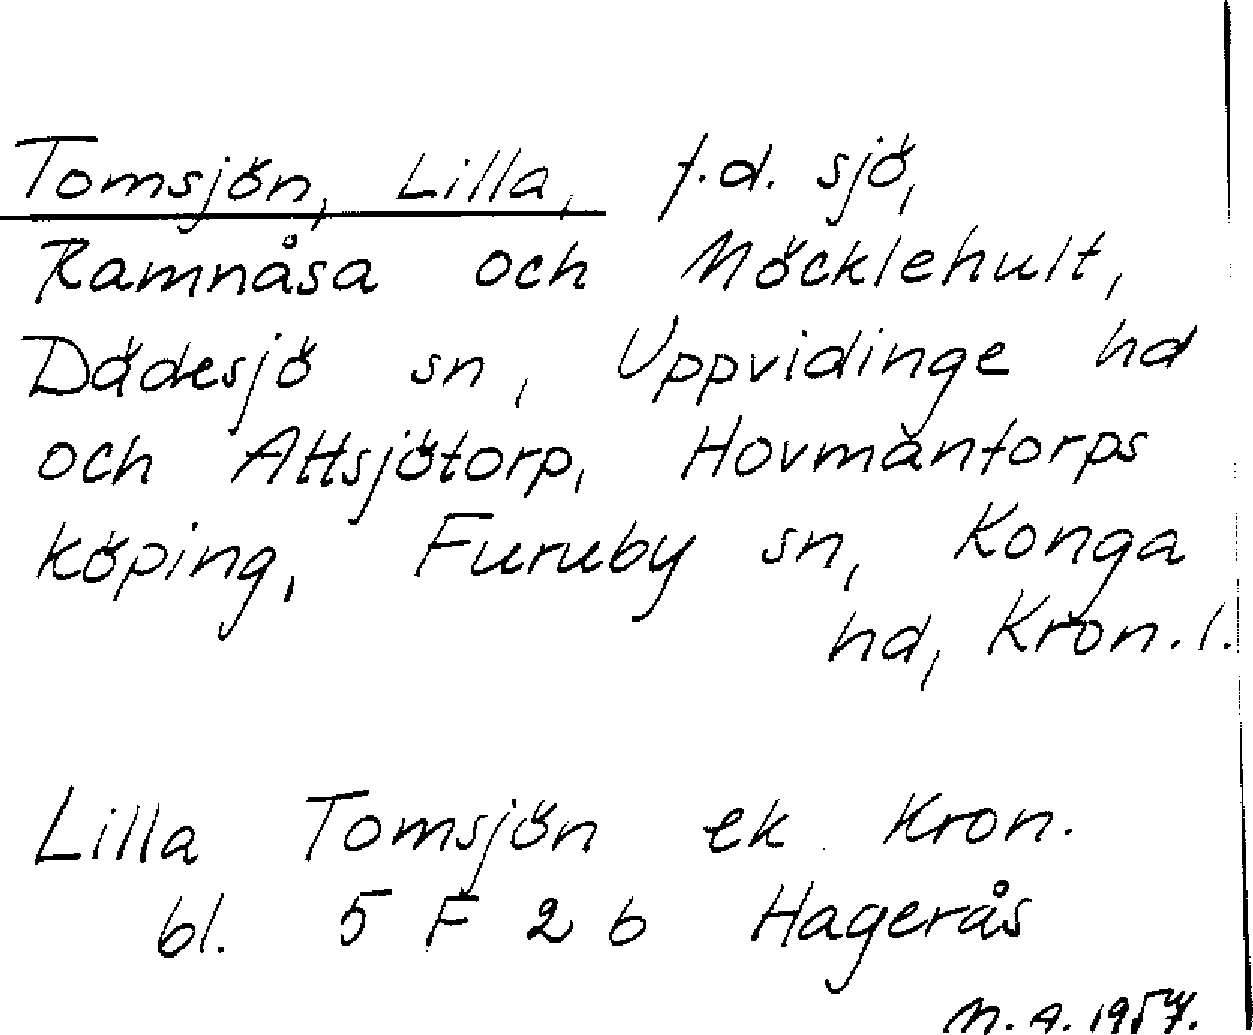 Tomsjön, Lilla, f.d. sjö,
Ramnåsa och Möcklehult,
Dädesjö sn, Uppvidinge hd
och Attsjötorp, Hovmantorps
köping, Furuby sn, Konga
hd, Kron.l.
Lilla Tomsjön ek Kron.
bl. 5 F 2 b Hagerås
M.A. 1957.